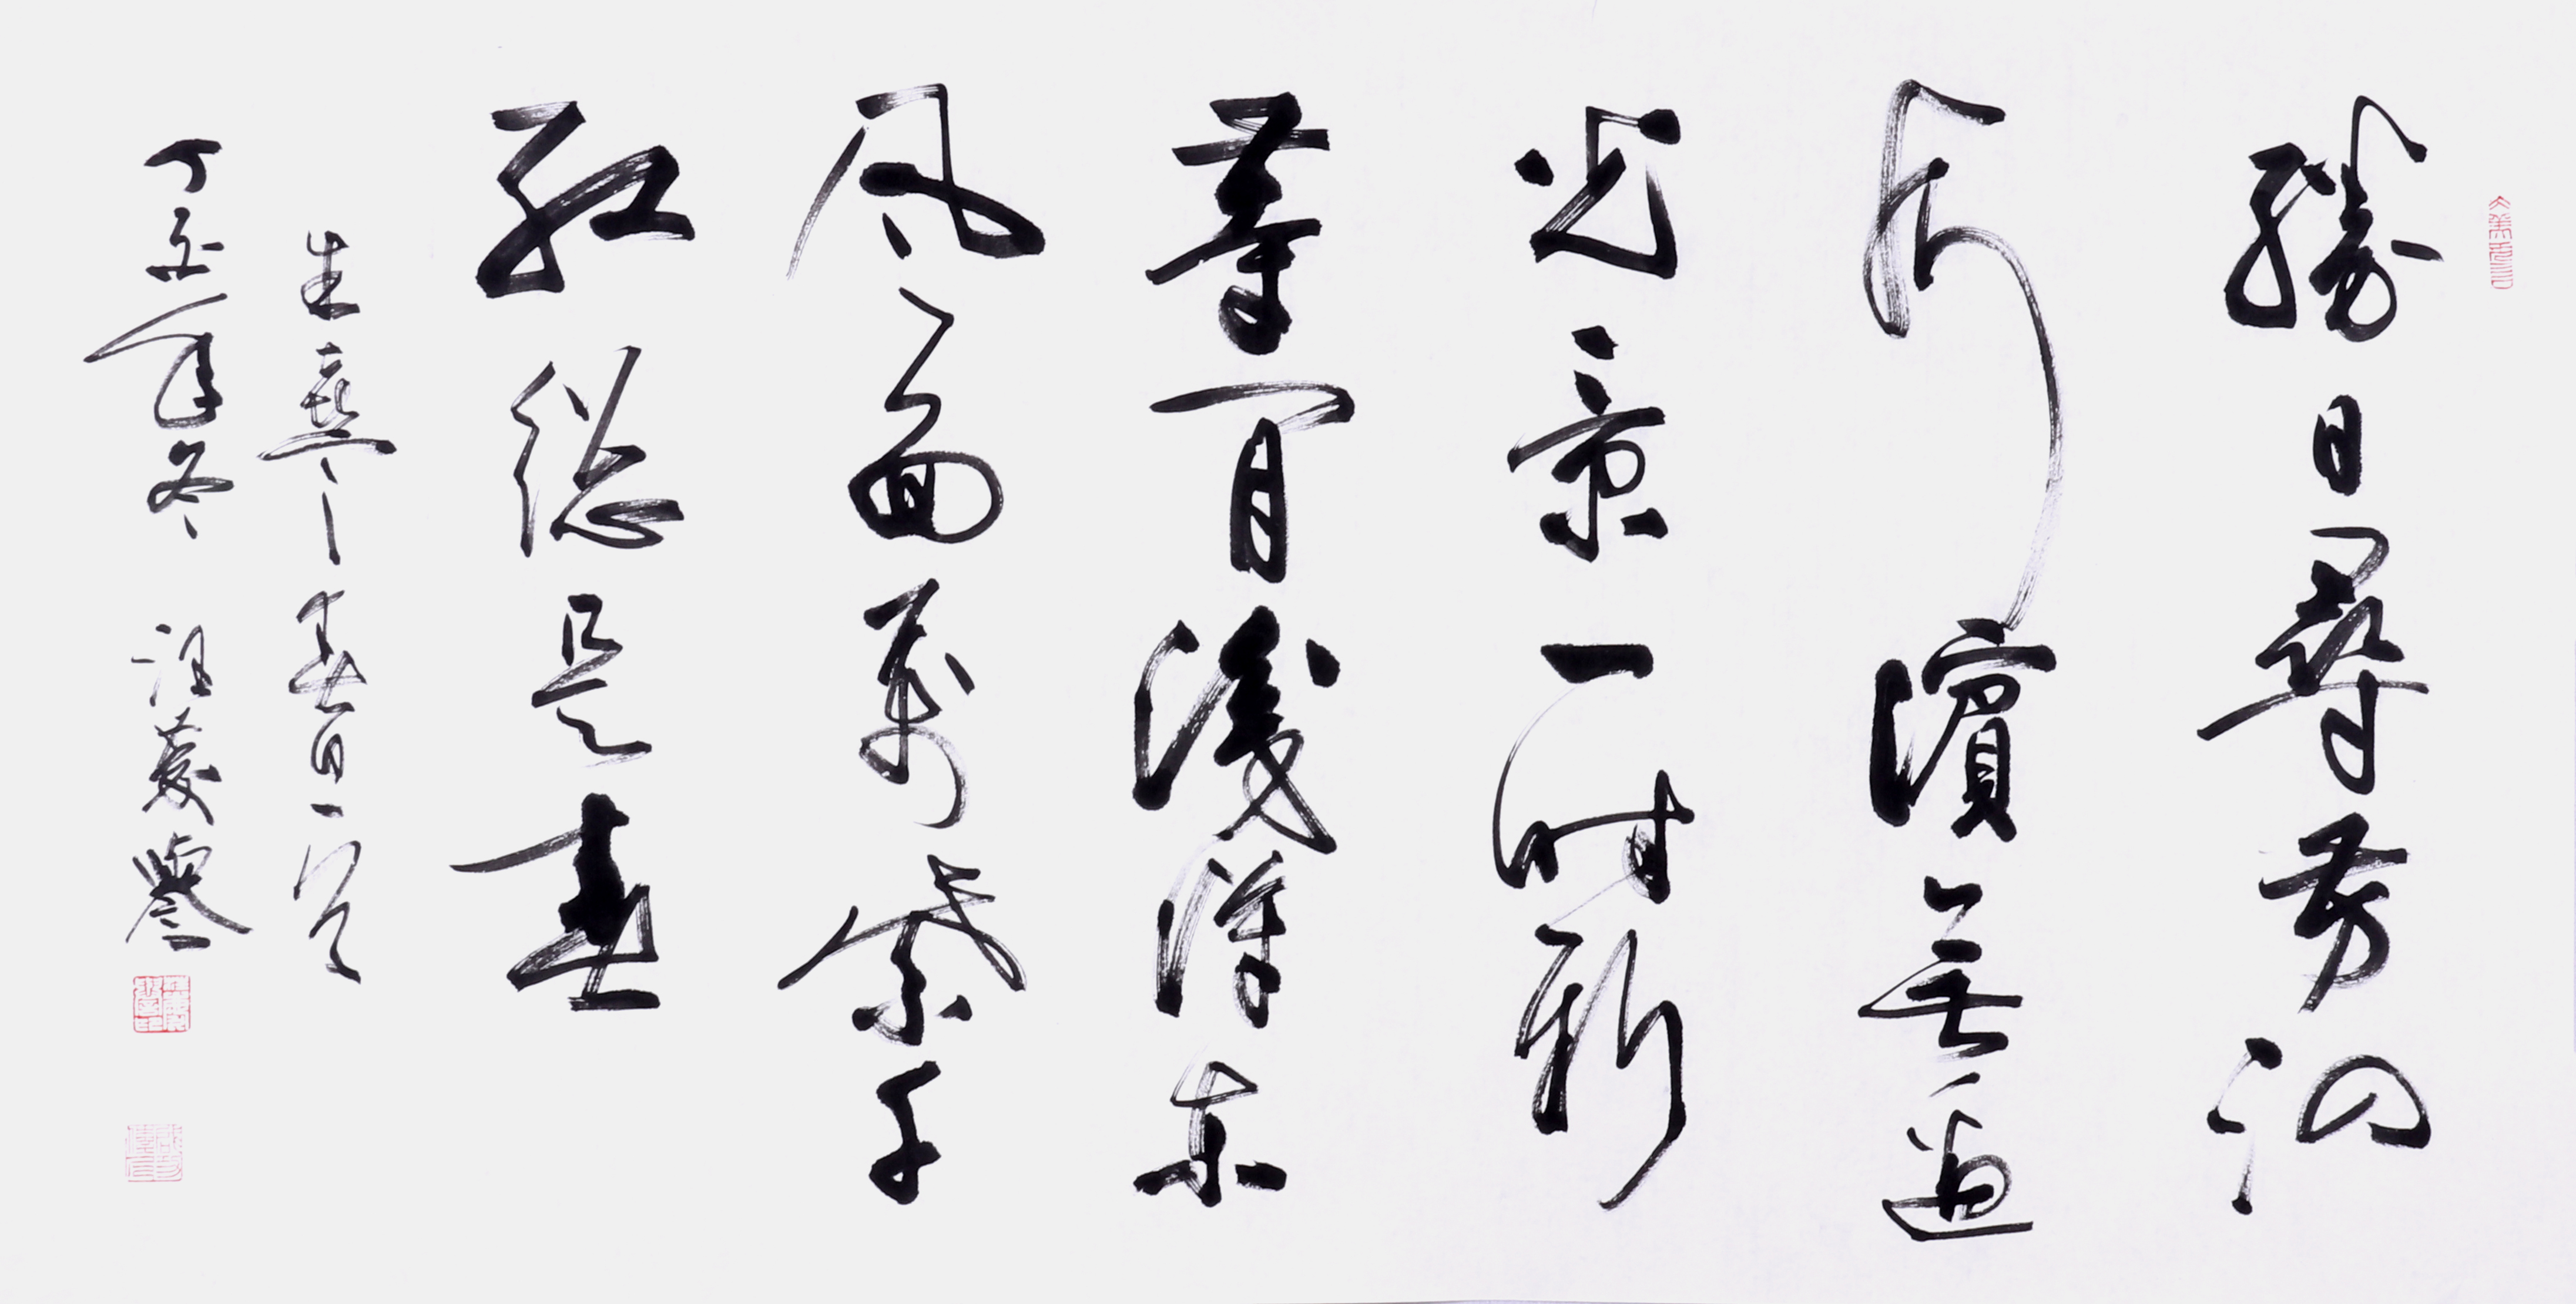 勝日尋芳泗
水濱無邊
光景一時新
等閒識得東
風面萬紫千
紅總是春
朱熹 春日一首
丁 年冬 汪慶譽